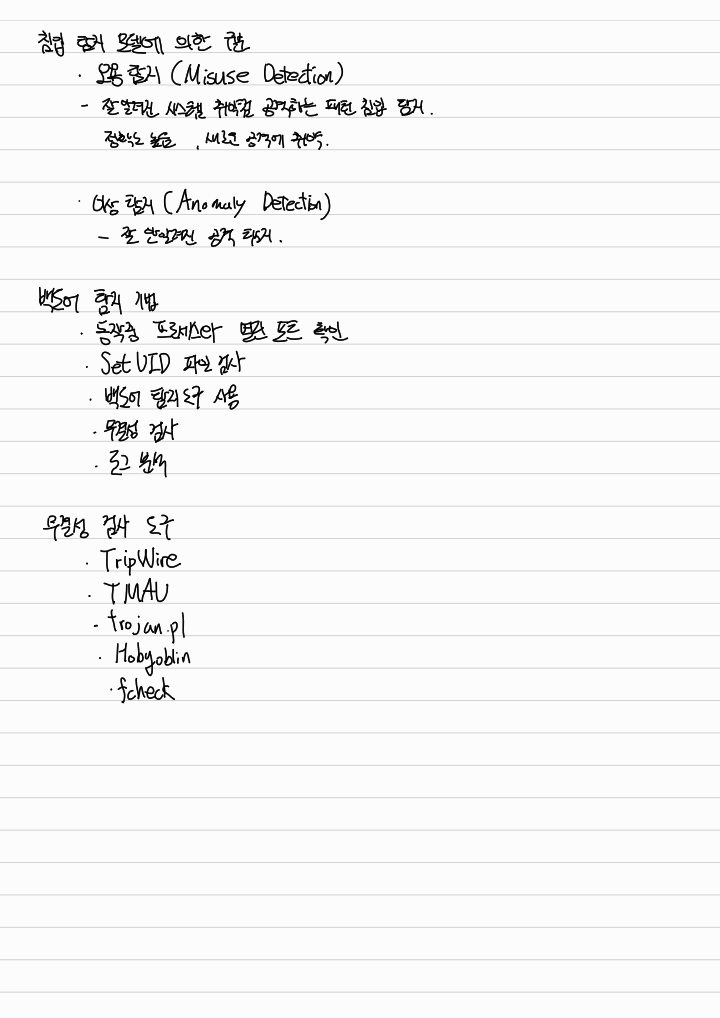 침입 탐지 모델에 의한 구분
· 오용 탐지 (Misuse Detection)
- 잘 알려진 시스템 취약점 공격하는 패턴 침입 탐지.
정확도 높음, 새로운 공격에 취약.
· 이상 탐지 (Anomaly Detection)
- 잘 안알려진 공격 탐지.
백도어 탐지 기법
· 동작중 프로세스와 열린 포트 확인
· SetUID 파일 검사
· 백도어 탐지도구 사용
· 무결성 검사
· 로그 분석
무결성 검사 도구
· TripWire
· TMAU
- trojan.pl
· Hobgoblin
· fcheck